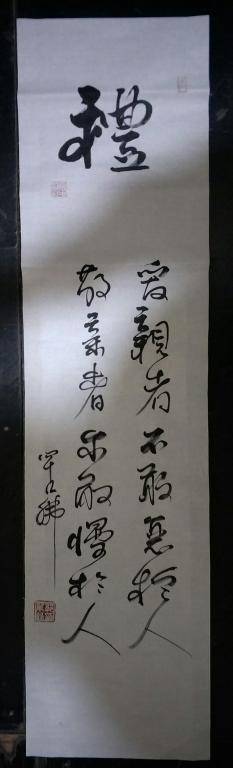 禮
愛親者不敢惡於人
敬親者不敢慢於人